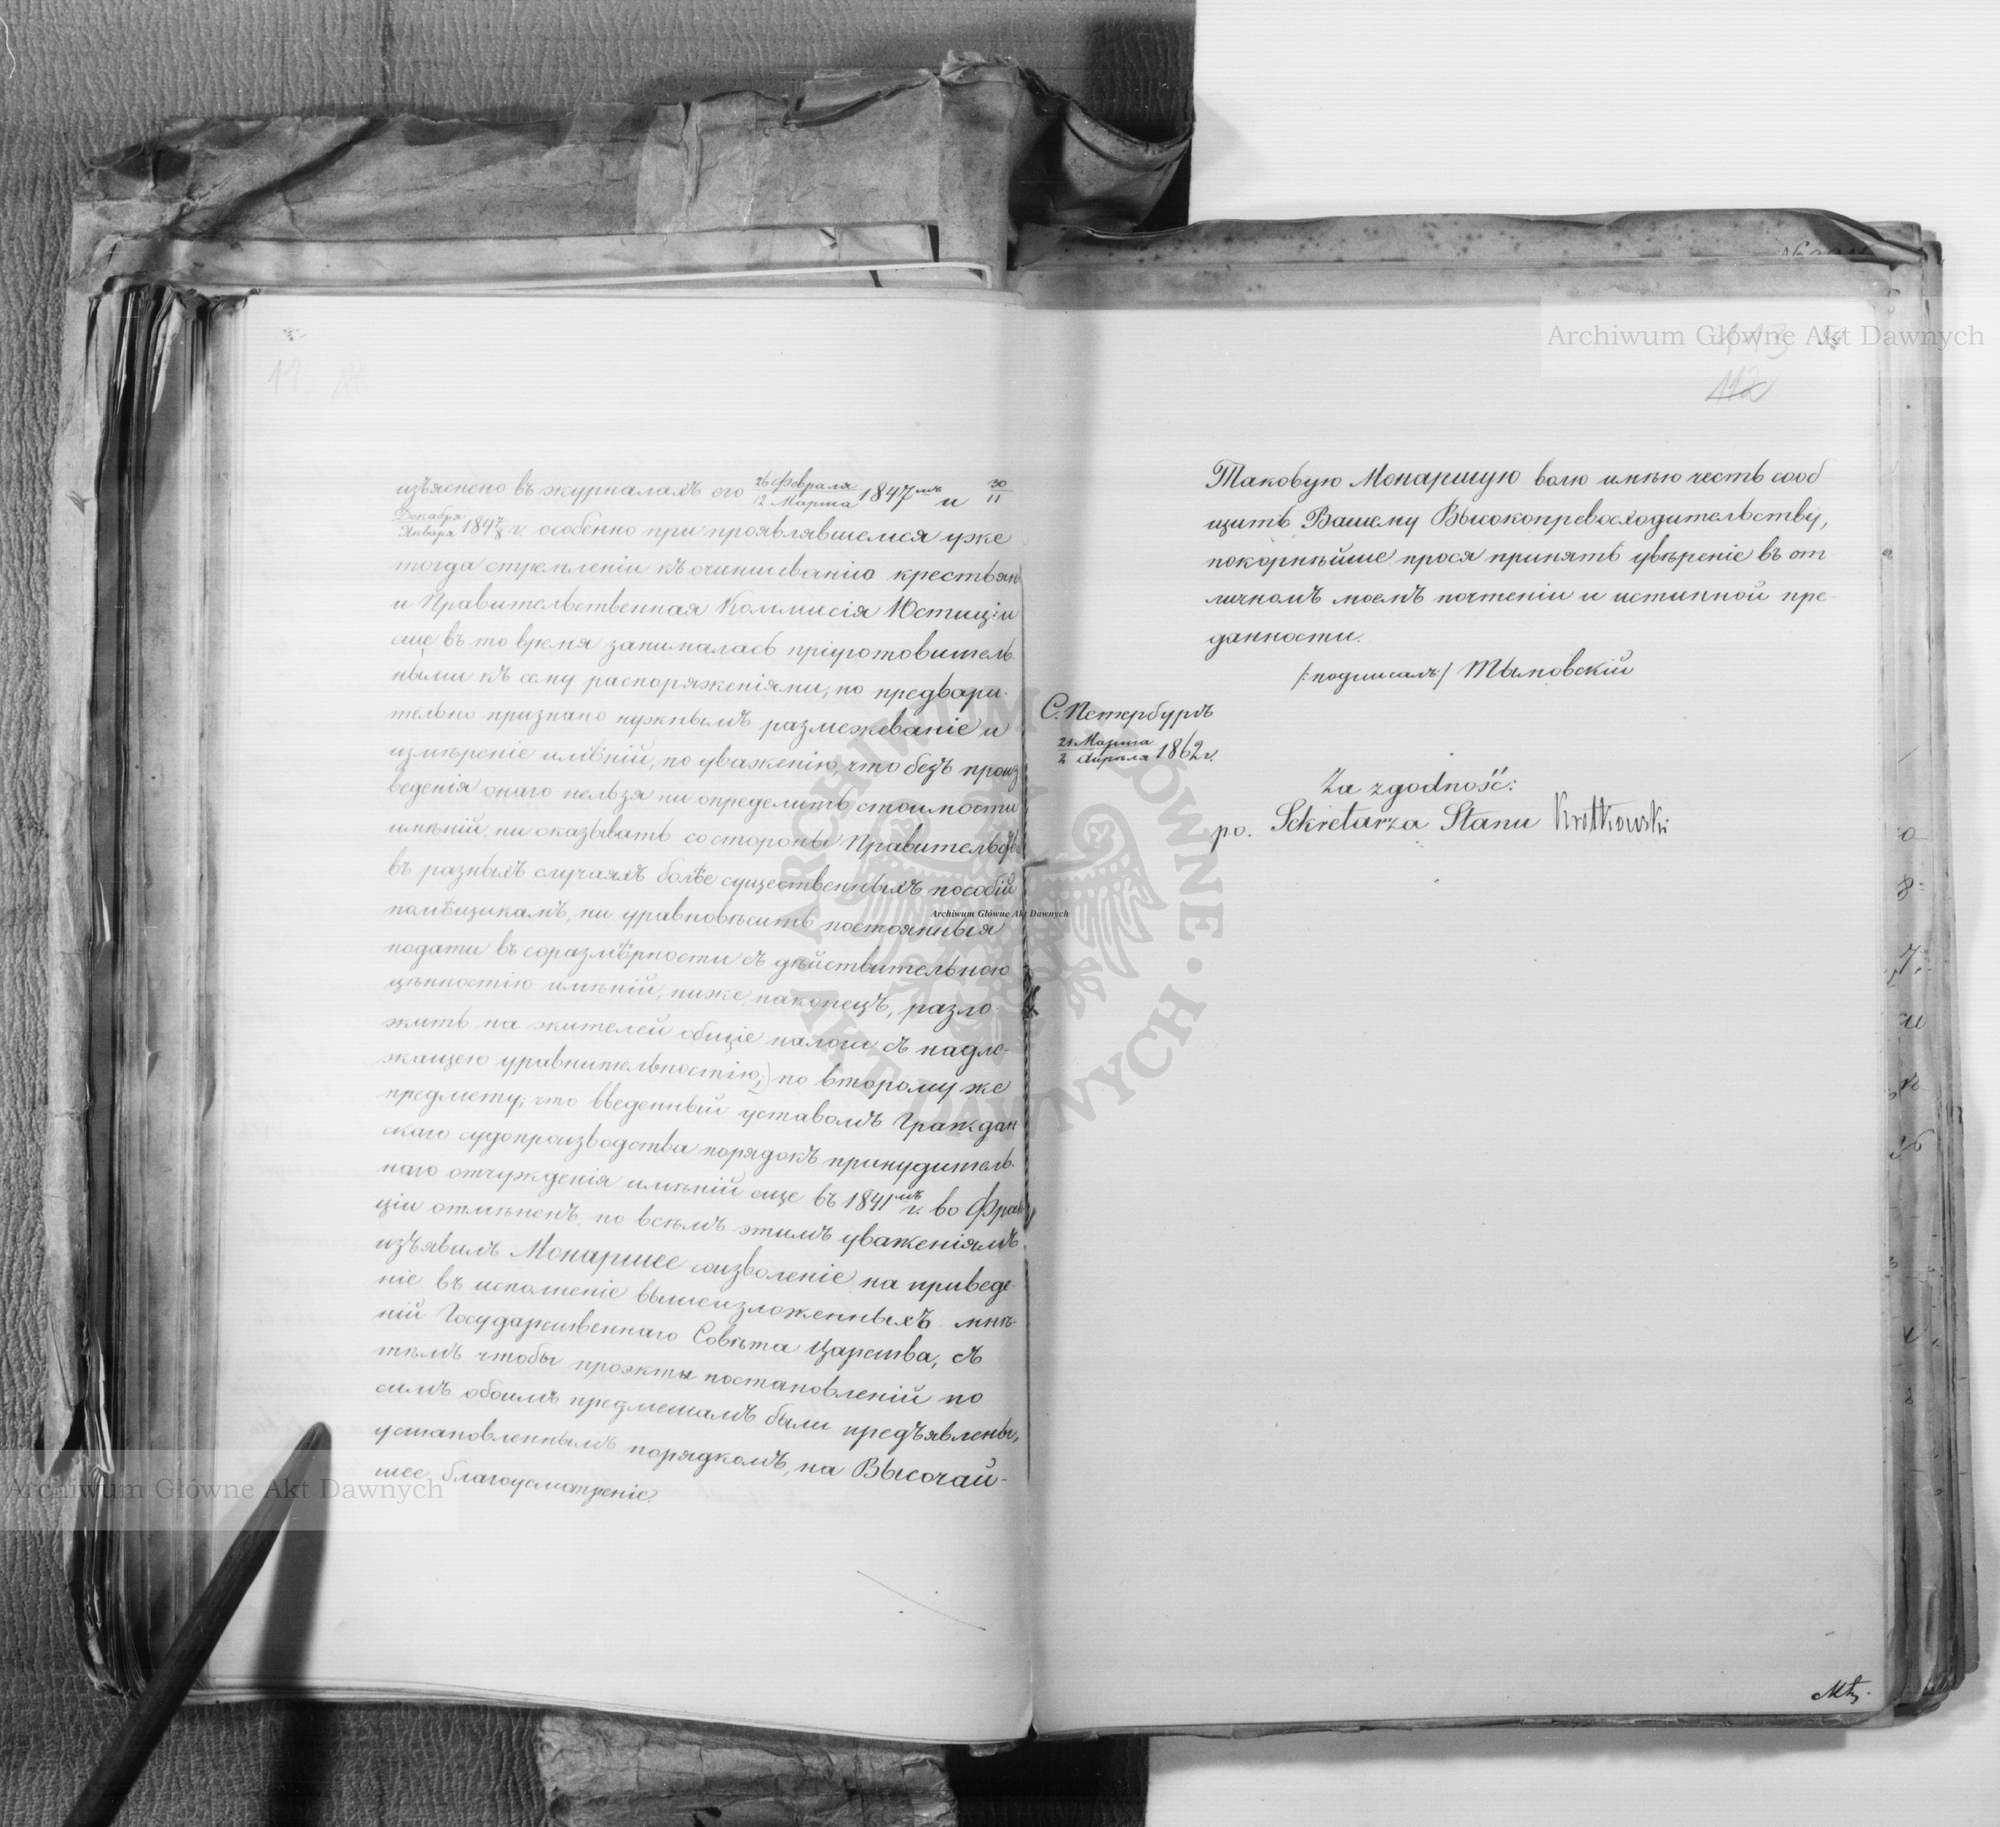 изъяснено въ журналахъ его 26 Февраля / 12 Марта 1847мъ и 30 / 11
Декабря / Января 1847/8 г. особенно при проявлявшемся уже
тогда стремленіи къ очиншеванію крестьянъ
и Правительственная Коммисія Юстиціи
еще въ то время занималась приготовитель-
ными къ сему распоряженіями, но предвари-
тельно признано нужнымъ размежеваніе и
измѣреніе имѣній, по уваженію, что безъ произ
веденія онаго нельзя ни определить стоимости
имѣній, ни оказывать со стороны Правительства
въ разныхъ случаяхъ болѣе существенныхъ пособій
помѣщикамъ, ни уравновѣсить постоянныя
подати въ соразмѣрности съ дѣйствительною
цѣнностію имѣній, ниже, наконецъ, разло-
жить на жителей общіе налоги съ надле-
жащею уравнительностію; по второму же
предмету; что введенный уставомъ Граждан
скаго судопроизводства порядокъ принудитель-
наго отчужденія имѣній еще въ 1841мъ г. во Фран
ціи отмѣненъ, по всѣмъ этимъ уваженіямъ
изъявилъ Монаршее соизволеніе на приведе-
ніе въ исполненіе вышеизложенныхъ мнѣ-
ній Государственнаго Совѣта Царства, съ
тѣмъ чтобы проэкты постановленій по
симъ обоимъ предметамъ были предъявлены,
установленнымъ порядкомъ, на Высочай-
шее благоусмотреніе.
113
112
Таковую Монаршую волю имѣю честь сооб
щить Вашему Высокопревосходительству,
покорнѣйше прося принять увѣреніе въ от
личномъ моемъ почтеніи и истинной пре-
данности.
/:подписалъ:/ Тымовскій
С. Петербургъ
21 Марта / 2 Апрѣля 1862 г.
Za zgodność:
po. Sekretarza Stanu Krotkowski
Archiwum Główne Akt Dawnych
Archiwum Główne Akt Dawnych
Archiwum Główne Akt Dawnych
ARCHIWUM GŁÓWNE AKT DAWNYCH